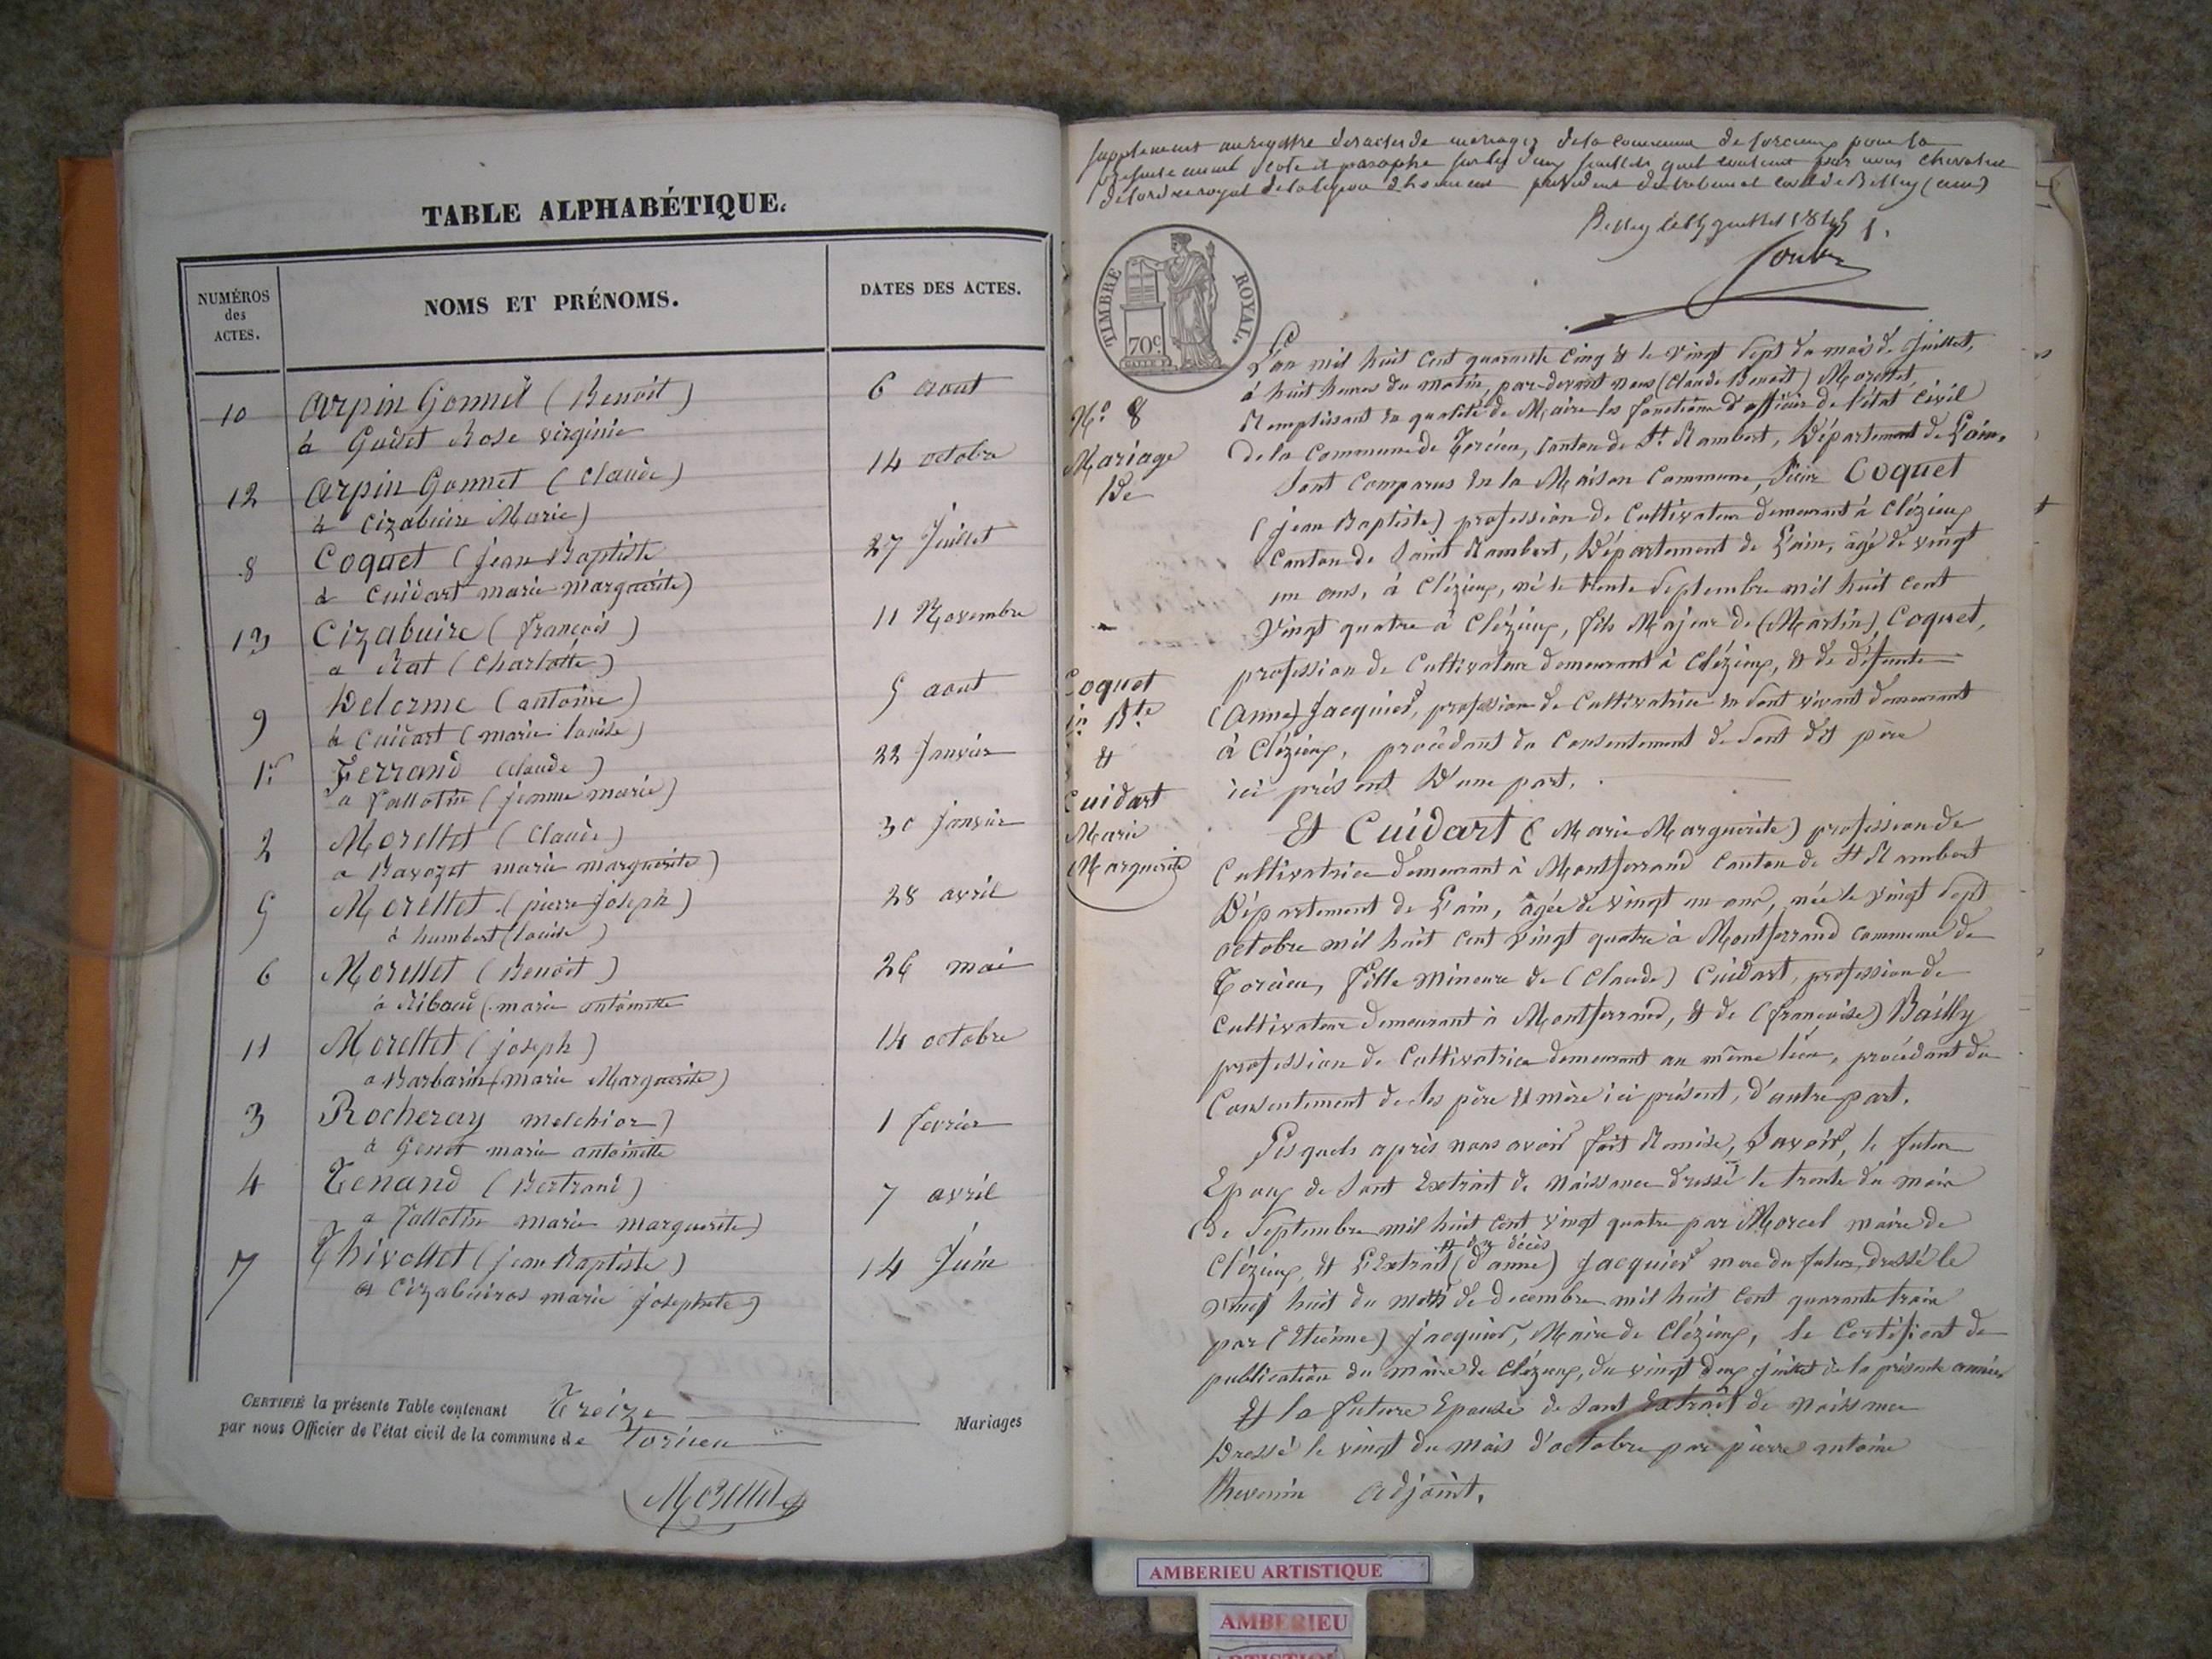 TABLE ALPHABÉTIQUE.
NUMÉROS
des
ACTES.
NOMS ET PRÉNOMS.
DATES DES ACTES.
10 Arpin Gonnet (Benoit) 6 aout
à Godet Rose virginie
12 Arpin Gonnet (Claude) 14 octobre
à Cizabuire Marie)
8 Coquet (jean Baptiste 27 Juillet
à Cuidart marie marguerite)
13 Cizabuire (françois) 11 Novembre
a Rat (Charlotte)
9 Delorme (antoine) 5 aout
à Cuidart (marie louise)
1er Ferrand (claude) 22 Janvier
a Vallotin (jeanne marie)
2 Morellet (Claude) 30 janvier
a Ravozet marie marguerite)
5 Morellet (pierre joseph) 28 avril
à humbert (louise)
6 Morellet (Benoit) 26 mai
à Riboud (marie antoinette
11 Morellet (joseph) 14 octobre
a Barbarin (marie Marguerite)
3 Rocheray melchior) 1 fevrier
à Genet marie antoinette
4 Tenand (Bertrand) 7 avril
a Vallotin marie marguerite)
7 Thivollet (jean Baptiste) 14 Juin
a Cizabuires marie josephete)
CERTIFIÉ la présente Table contenant Treize Mariages
par nous Officier de l'état civil de la commune de Torcieu
Morellet
supplement au registre des actes de mariages de la commune de torcieu pour la
presente annee cote et paraphe sur les deux feuillets quil contient par nous chevalier
de lordre royal de la legion dhonneur president du tribunal civil de Belley (ain)
Belley le 15 juillet 1845
1.
TIMBRE ROYAL.
70c
No 8
Mariage
De
Coquet
jn Bte
&
Cuidart
Marie
Marguerite
L'an mil huit cent quarante cinq & le vingt sept du mois de juillet,
à huit heures du matin, par-devant nous (Claude Benoit) Morellet,
Remplissant en qualité de Maire les fonctions d'officier de l'état civil
de la Commune de Torcieu, Canton de St Rambert, Département de L'ain.
Sont Comparus en la Maison Commune, Sieur Coquet
(jean Baptiste) profession de Cultivateur demeurant à Clézieux
Canton de Saint Rambert, Département de L'ain, âgé de vingt
un ans, à Clézieux, né le trente Septembre mil huit cent
Vingt quatre à Clézieux, fils Majeur de (Martin) Coquet,
profession de Cultivateur demeurant à Clézieux, & de défunte
(Anne) Jacquier, profession de Cultivatrice en sont vivant demeurant
à Clézieux, procédant du Consentement de sont dit père
ici présent D'une part.
Et Cuidart (Marie Marguerite) profession de
Cultivatrice demeurant à Montferrand Canton de St Rambert
Département de L'ain, âgée de vingt un ans, née le vingt sept
octobre mil huit cent vingt quatre à Montferrand commune de
Torcieu, fille mineure de (Claude) Cuidart, profession de
Cultivateur demeurant à Montferrand, & de (francoise) Bailly
profession de Cultivatrice demeurant au même lieu, procédant du
Consentement de ses père & mère ici présent, d'autre part.
Lesquels après nous avoir fait Remise, Savoir, le futur
Epoux de sont Extrait de Naissance dressé le trente du mois
de Septembre mil huit cent vingt quatre par Morcel maire de
Clézieux, & L'Extrait de décès (d'anne) Jacquier mere du futur, dressé le
vingt huit du mois de decembre mil huit cent quarante trois
par (Etienne) Jacquier, Maire de Clézieux, le Certificat de
publication du maire de Clézieux, du vingt deux juillet de la présente année
Et la future Epouse de sont Extrait de Naissance
Dressé le vingt du mois d'octobre par pierre antoine
Thevenin adjoint.
AMBERIEU ARTISTIQUE
AMBERIEU
ARTISTIQUE